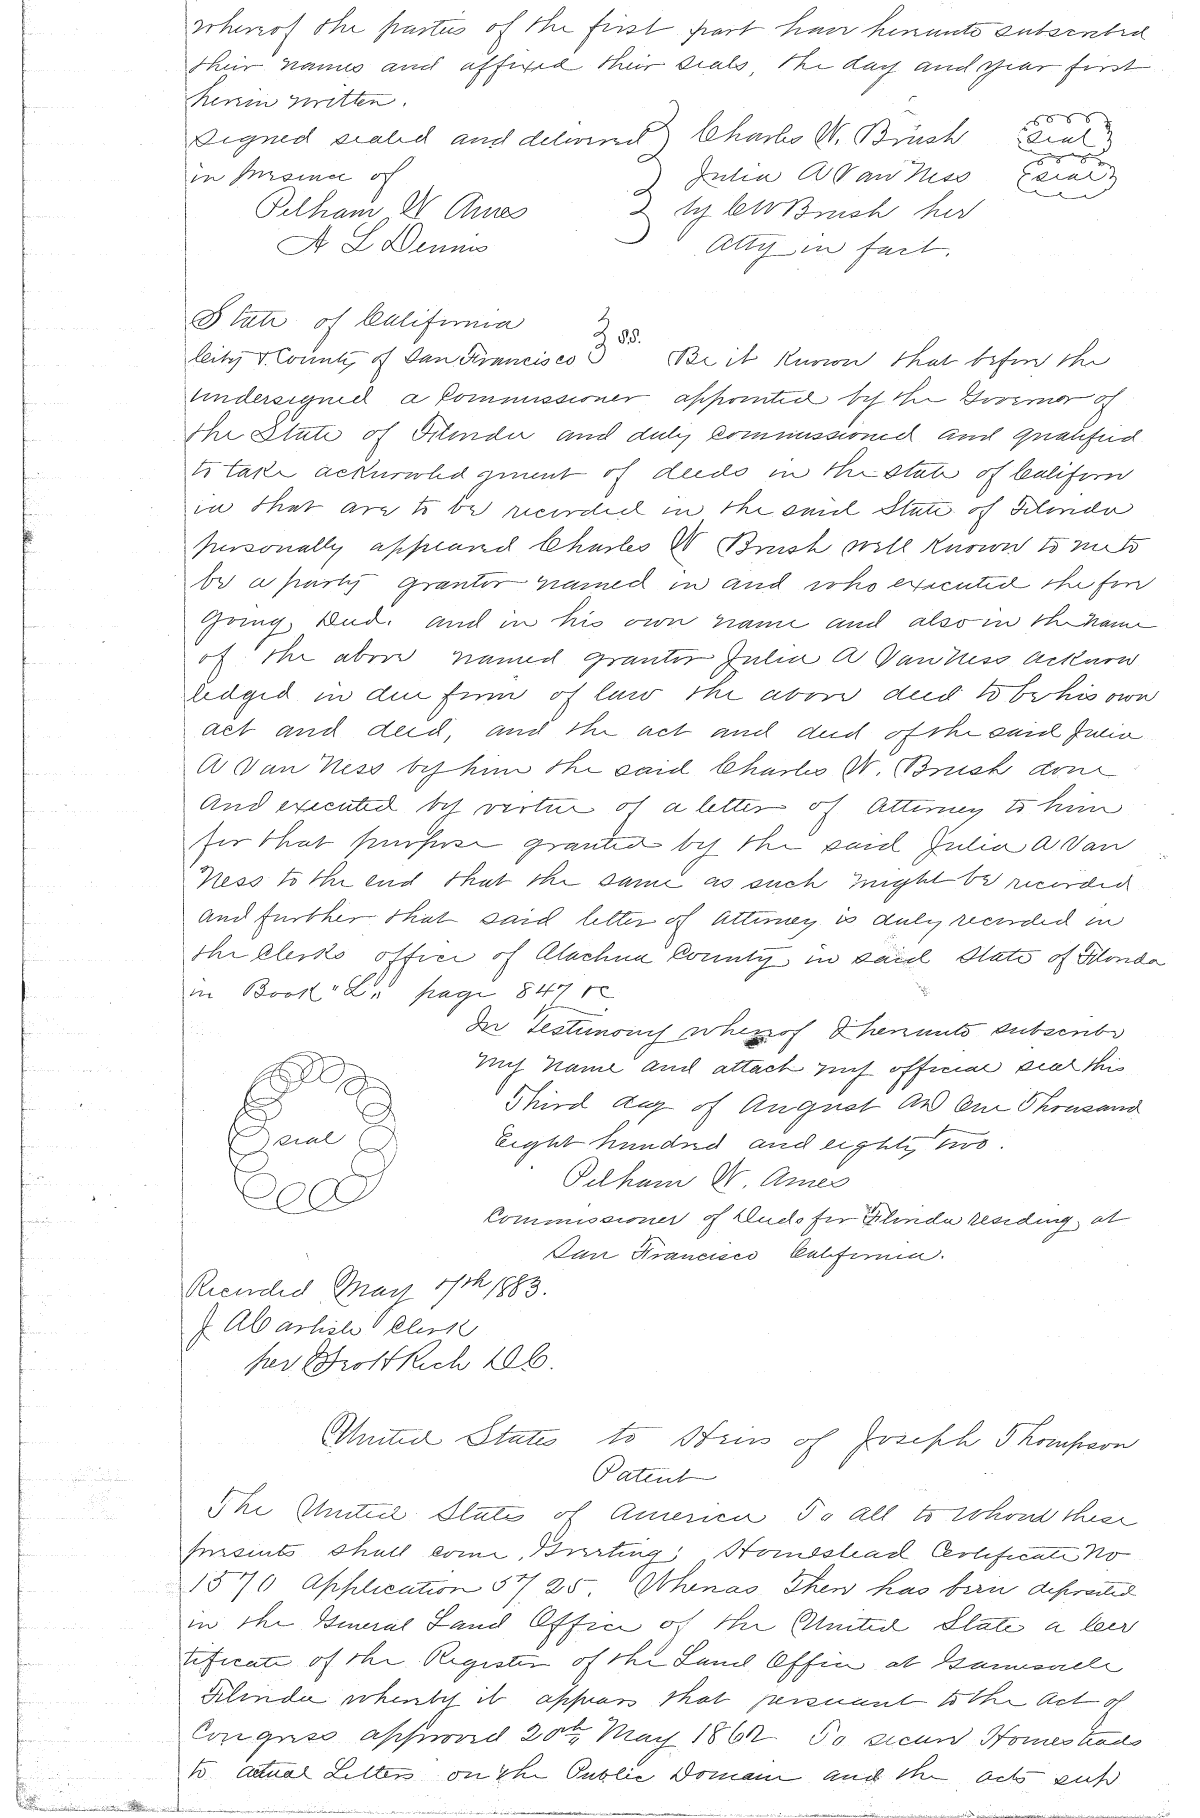 whereof the parties of the first part have hereunto subscribed
their names and affixed their seals, the day and year first
herein written.
Signed sealed and delivered Charles W. Brush Seal
in presence of Julia A Van Ness Seal
Pelham W Ames by CW Brush her
A L Dennis Atty in fact.
State of California
City & County of San Francisco SS. Be it Known that before the
undersigned a Commissioner appointed by the Governor of
the State of Florida and duly commissioned and qualified
to take acknowledgment of deeds in the state of Californ
ia that are to be recorded in the said State of Florida
personally appeared Charles W Brush well known to me to
be a party grantor named in and who executed the fore
going Deed. and in his own name and also in the name
of the above named grantor Julia A Van Ness acknow
ledged in due form of law the above deed to be his own
act and deed, and the act and deed of the said Julia
A Van Ness by him the said Charles W. Brush done
And executed by virtue of a letter of Attorney to him
for that purpose granted by the said Julia A Van
Ness to the end that the same as such might be recorded
and further that said letter of Attorney is duly recorded in
the Clerks office of Alachua County in said State of Florida
in Book "L" page 847 &c
In Testimony whereof I hereunto subscribe
my name and attach my official seal this
Third day of August AD One Thousand
seal Eight hundred and eighty two.
Pelham W. Ames
Commissioner of Deeds for Florida residing at
San Francisco California.
Recorded May 17th 1883.
J A Carlisle Clerk
per DC.
United States to Heirs of Joseph Thompson
Patent
The United States of America To all to whom these
presents shall come, Greeting; Homestead Certificate No
1570 Application 5725. Whereas There has been deposited
in the General Land Office of the United State a Cer
tificate of the Register of the Land Office at Gainesville
Florida whereby it appears that persuant to the Act of
Congress approved 20th May 1862 To secure Homesteads
to actual Settlers on the Public Domain and the acts sup